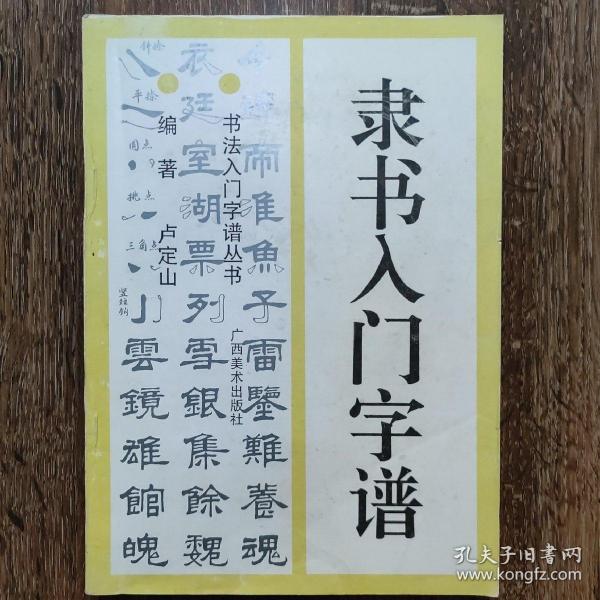 隶书入门字谱
书法入门字谱丛书
广西美术出版社
编著 卢定山
帝淮魚子雷鑒難養魂
衣廷室湖票列雪銀集餘魏
斜捺
平捺
圆点
挑点
三角点
竖弯钩
雲鏡雄館魄
孔夫子旧书网
www.kongfz.com